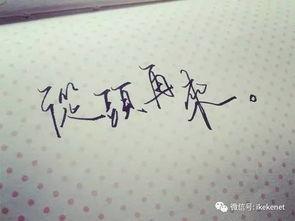 從頭再來。
微信号: ikekenet